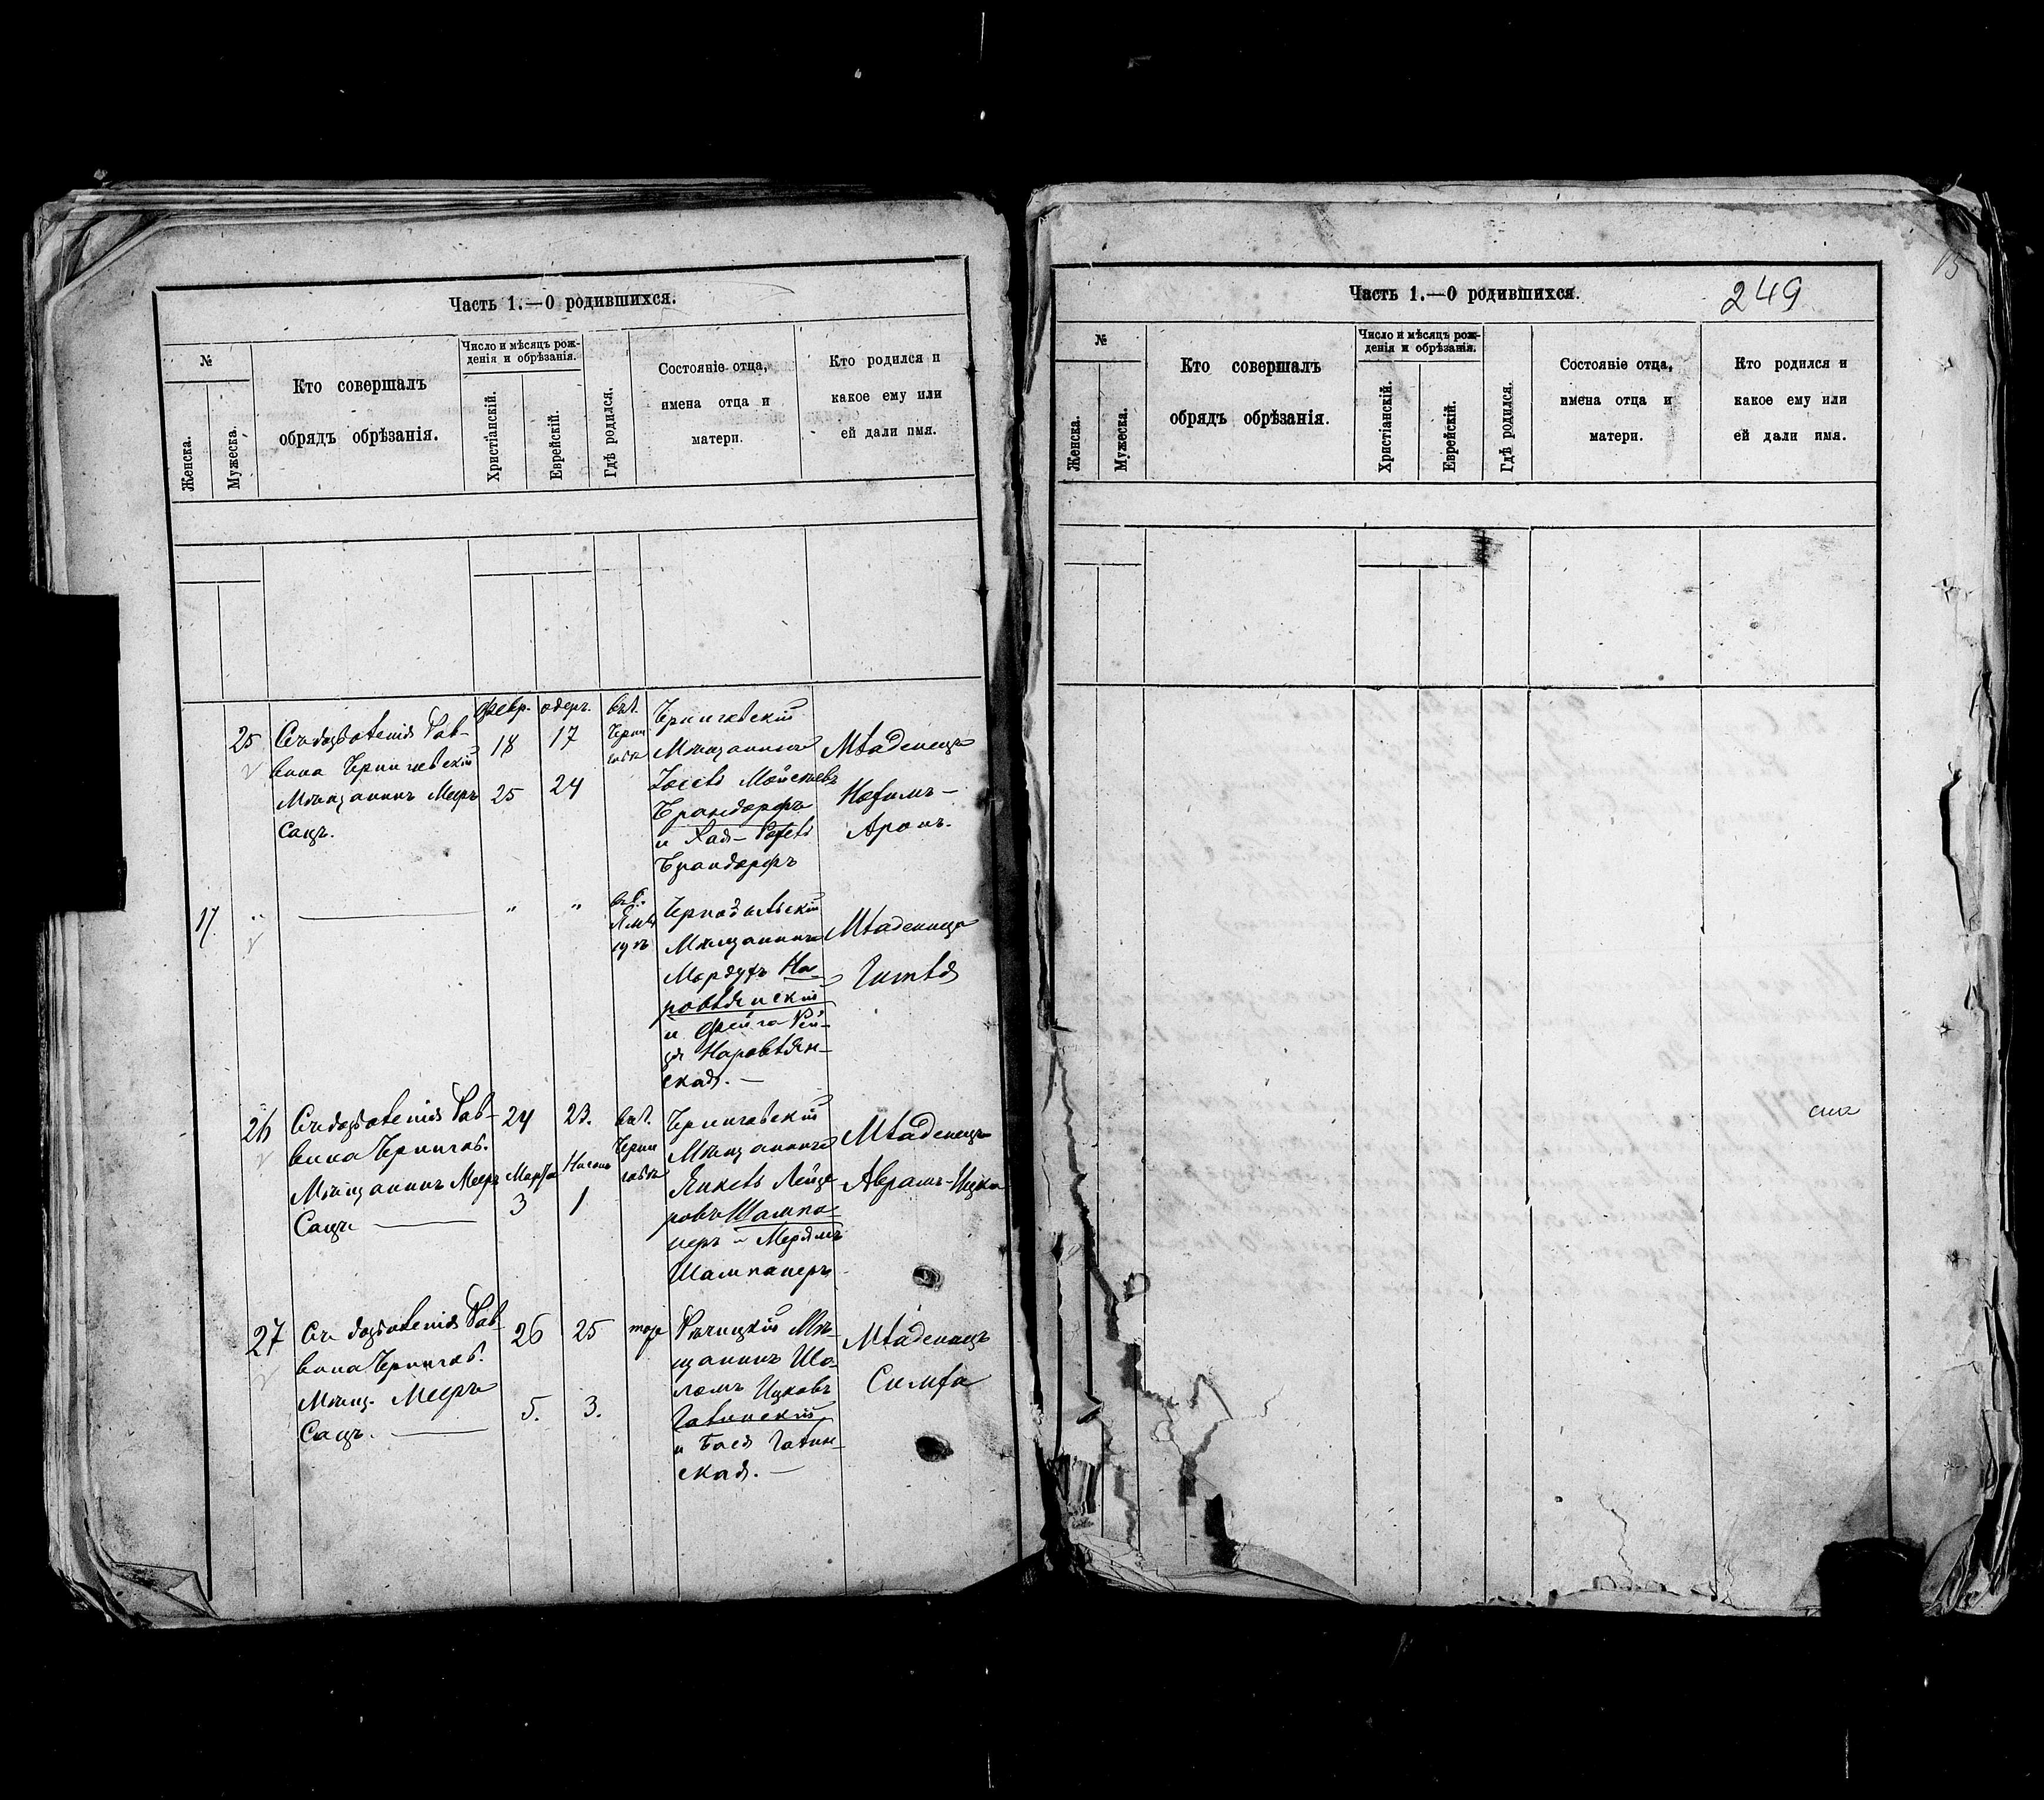 Часть 1.—О родившихся.
№
Женска.
Мужеска.
Кто совершалъ
обрядъ обрѣзанія.
Число и мѣсяцъ рож-
денія и обрѣзанія.
Христіанскій.
Еврейскій.
Гдѣ родился.
Состояніе отца,
имена отца и
матери.
Кто родился и
какое ему или
ей дали имя.
25
Съ дозволенія Рав-
вина Черниговскій
Мѣщанинъ Мееръ
Сацъ.
Февр.
18
25
одеръ.
17
24
въ г.
Черни
говѣ
Черниговскій
Мѣщанинъ
Іосель Мойсеевъ
Брандорфъ
и Хая-Рохель
Брандорфъ
Младенецъ
Нохимъ-
Аронъ.
17.
"
"
"
въ г.
Чернобыльскій
Мѣщанинъ
Мордухъ На-
ровлянскій
и Фейга Рей-
ця Наровлян-
ская.—
Младеница
Гитля
26
Съ дозволенія Рав-
вина Черниговс.
Мѣщанинъ Мееръ
Сацъ
24
Марта
3
23.
Нисанъ
1
въ г.
Черни
говѣ
Черниговскій
Мѣщанинъ
Янкель Лейзе
ровъ Шампа-
неръ и Мерямъ
Шампанеръ
Младенецъ
Абрамъ-Ицко
27
Съ дозволенія Рав-
вина Черниговс.
Мѣщ. Мееръ
Сацъ.
26
5.
25
3.
тоже
Рѣчицкій Мѣ-
щанинъ Шо-
ломъ Ицковъ
Галинскій
и Бася Галин-
ская.—
Младенецъ
Симха
Часть 1.—О родившихся.
249
15
№
Женска.
Мужеска.
Кто совершалъ
обрядъ обрѣзанія.
Число и мѣсяцъ рож-
денія и обрѣзанія.
Христіанскій.
Еврейскій.
Гдѣ родился.
Состояніе отца,
имена отца и
матери.
Кто родился и
какое ему или
ей дали имя.